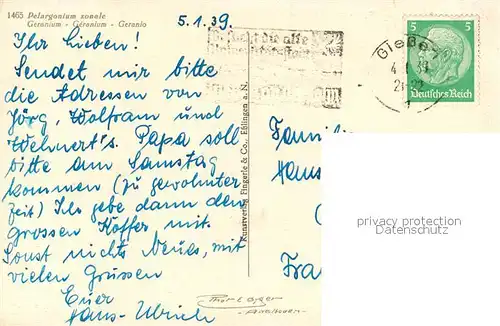 1465 Pelargonium zonale
Geranium - Géranium - Geranio
5.1.39.
Ihr lieben!
Sendet mir bitte
die Adressen von
Jörg, Wolfram und
Wehnert's. Papa soll
bitte am Samstag
kommen (zu gewohnter
Zeit) Ich gebe dann den
grossen Koffer mit.
Sonst nichts Neues, mit
vielen Grüssen
Euer
Hans-Ulrich
Kunstverlag Fingerle & Co., Eßlingen a. N.
die alte
Gießen
5 5
Deutsches Reich
Famili
Hans
Fra
privacy protection
Datenschutz